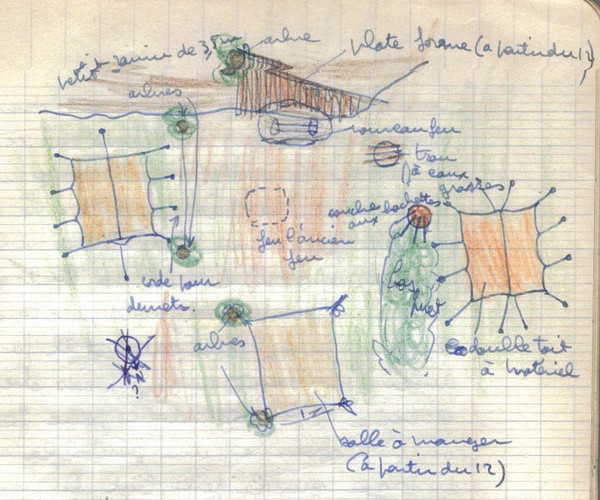 petit ravin de 3,5m
arbre
plate forme (à partir du 12)
arbres
nouveau feu
trou
à eaux
grasses
souche
aux hachettes
feu l'ancien
feu
corde pour
duvets.
bosquet
arbres
double toit
à matériel
salle à manger
(à partir du 12)